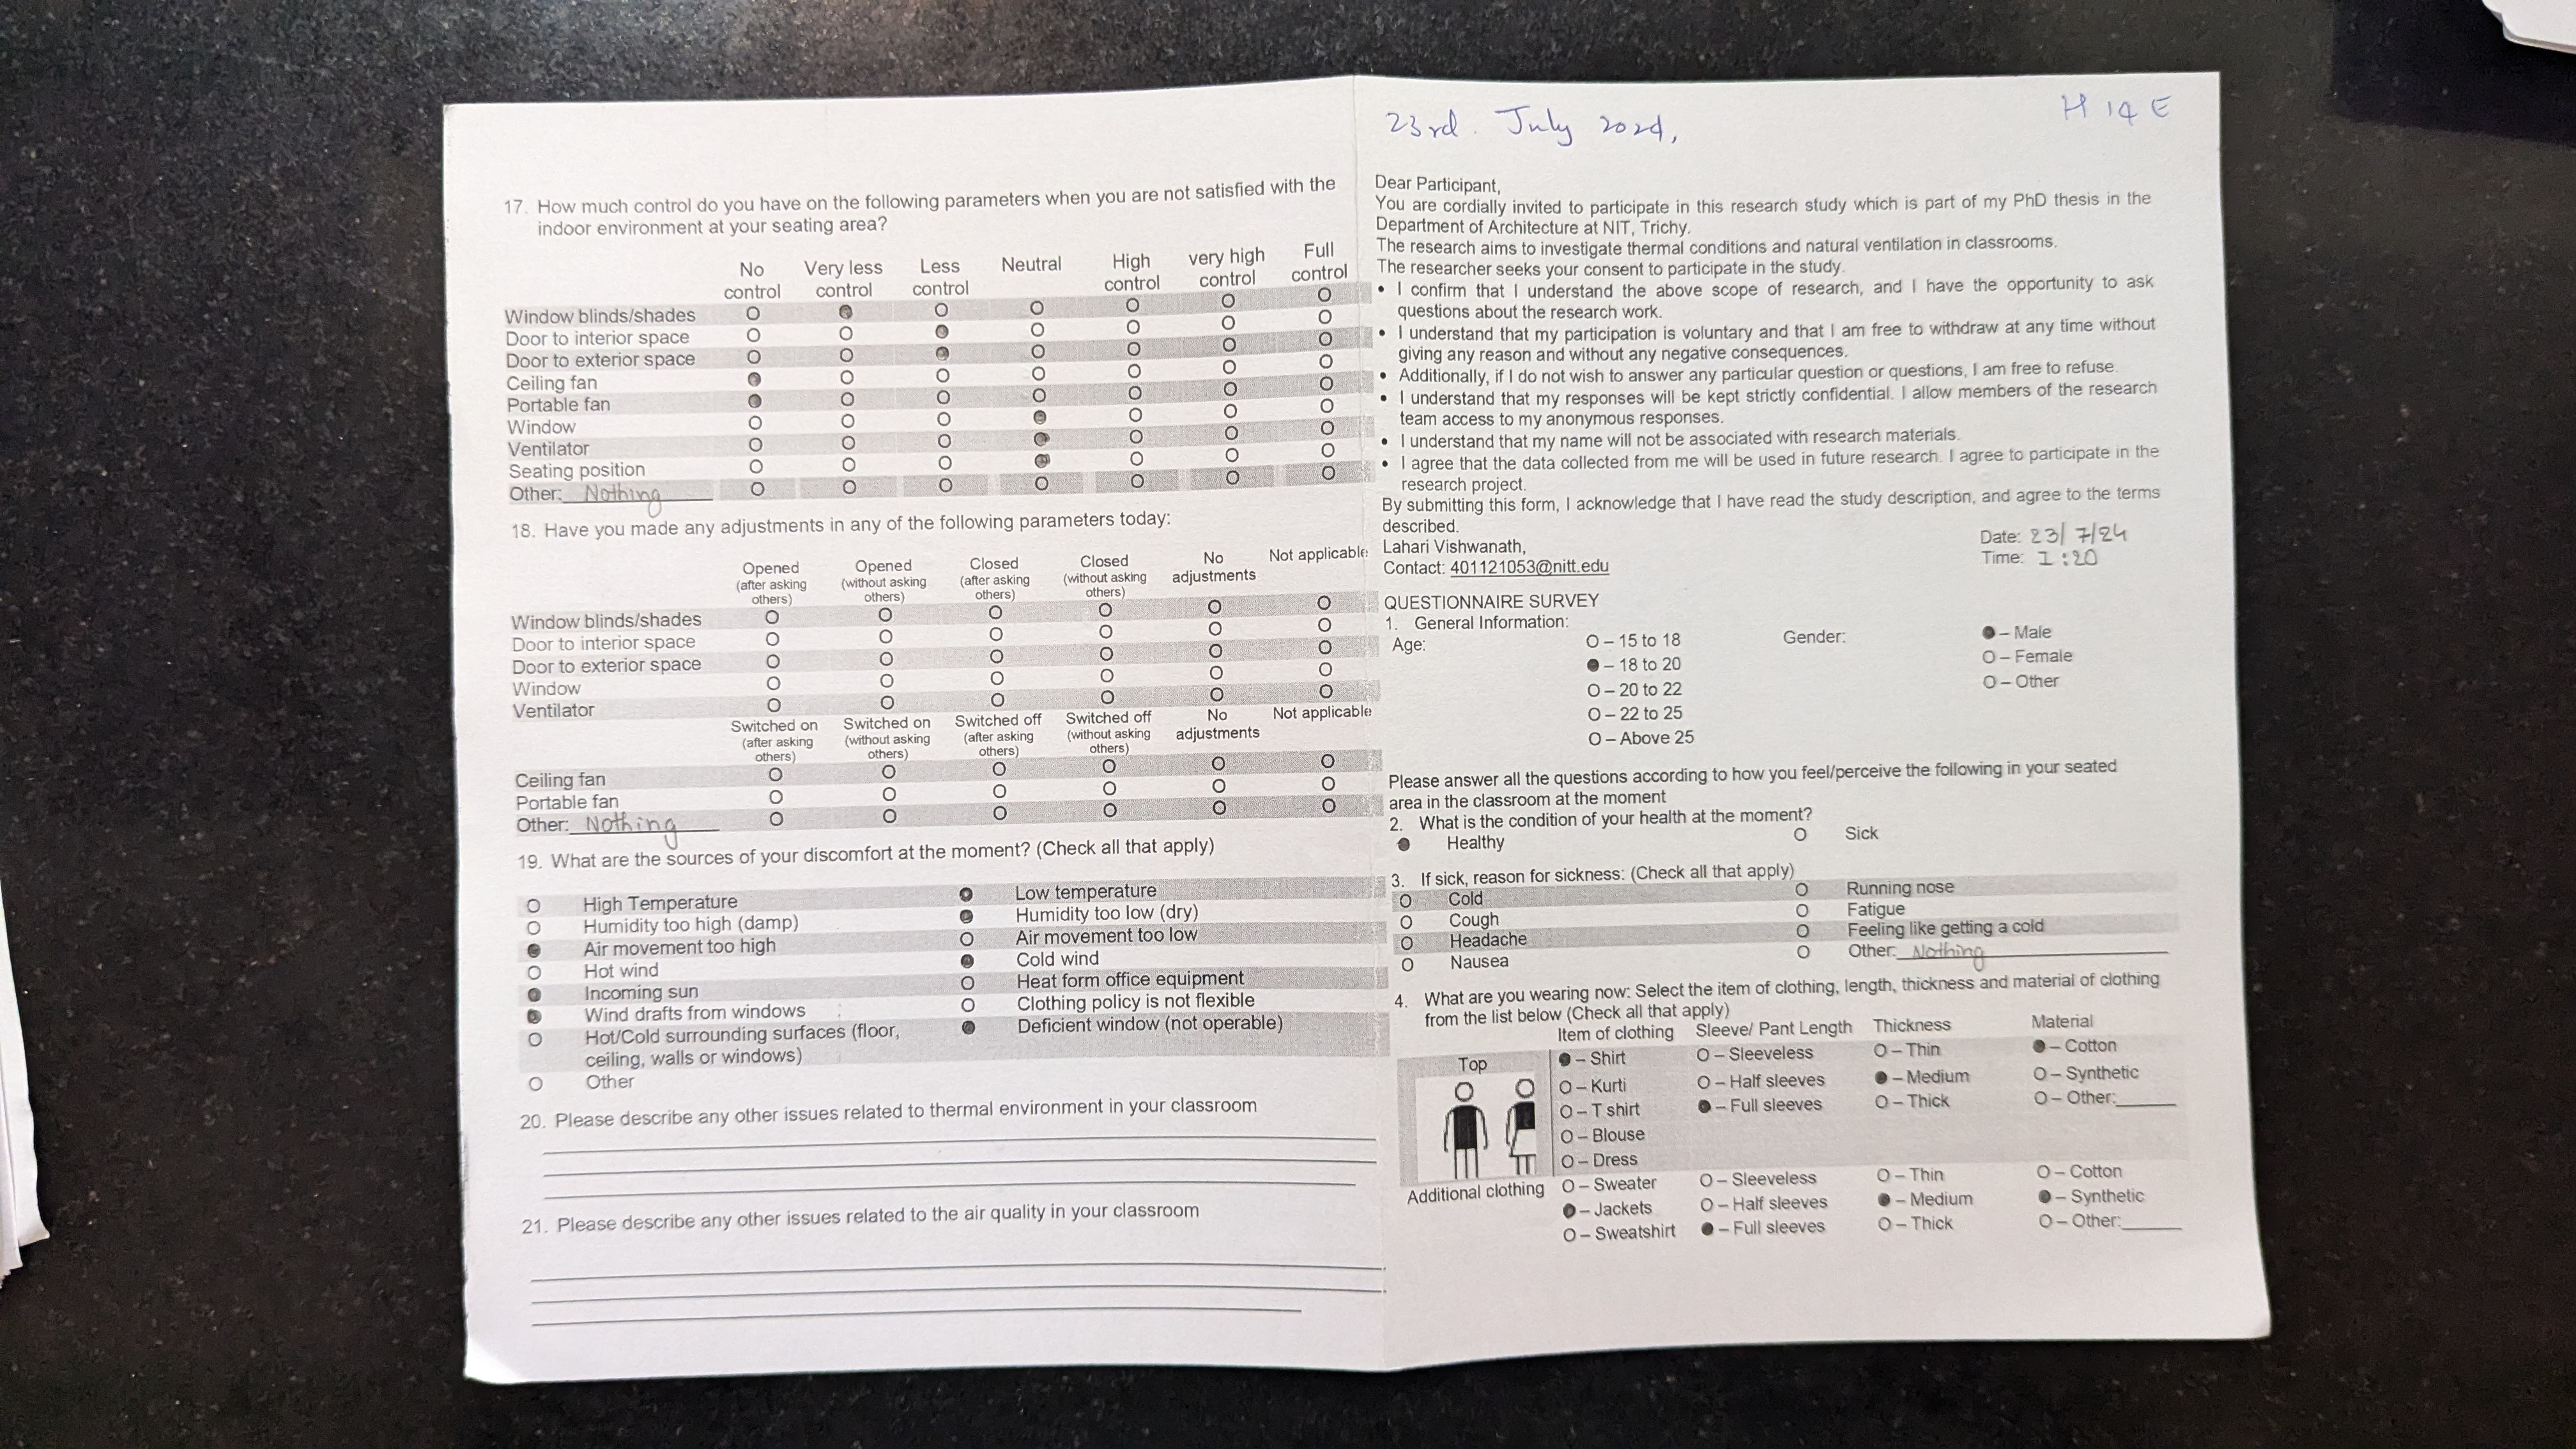 17. How much control do you have on the following parameters when you are not satisfied with the
indoor environment at your seating area?
No control Very less control Less control Neutral High control very high control Full control
Window blinds/shades O ● O O O O O
Door to interior space O O ● O O O O
Door to exterior space O O ● O O O O
Ceiling fan ● O O O O O O
Portable fan ● O O O O O O
Window O O O ● O O O
Ventilator O O O ● O O O
Seating position O O O ● O O O
Other: Nothing O O O O O O O
18. Have you made any adjustments in any of the following parameters today:
Opened (after asking others) Opened (without asking others) Closed (after asking others) Closed (without asking others) No adjustments Not applicable
Window blinds/shades O O O O O O
Door to interior space O O O O O O
Door to exterior space O O O O O O
Window O O O O O O
Ventilator O O O O O O
Switched on (after asking others) Switched on (without asking others) Switched off (after asking others) Switched off (without asking others) No adjustments Not applicable
Ceiling fan O O O O O O
Portable fan O O O O O O
Other: Nothing O O O O O O
19. What are the sources of your discomfort at the moment? (Check all that apply)
O High Temperature ● Low temperature
O Humidity too high (damp) ● Humidity too low (dry)
● Air movement too high O Air movement too low
O Hot wind ● Cold wind
● Incoming sun O Heat form office equipment
● Wind drafts from windows O Clothing policy is not flexible
O Hot/Cold surrounding surfaces (floor, ● Deficient window (not operable)
ceiling, walls or windows)
O Other
20. Please describe any other issues related to thermal environment in your classroom
21. Please describe any other issues related to the air quality in your classroom
23rd. July 2024,
H 14 E
Dear Participant,
You are cordially invited to participate in this research study which is part of my PhD thesis in the
Department of Architecture at NIT, Trichy.
The research aims to investigate thermal conditions and natural ventilation in classrooms.
The researcher seeks your consent to participate in the study.
• I confirm that I understand the above scope of research, and I have the opportunity to ask
questions about the research work.
• I understand that my participation is voluntary and that I am free to withdraw at any time without
giving any reason and without any negative consequences.
• Additionally, if I do not wish to answer any particular question or questions, I am free to refuse.
• I understand that my responses will be kept strictly confidential. I allow members of the research
team access to my anonymous responses.
• I understand that my name will not be associated with research materials.
• I agree that the data collected from me will be used in future research. I agree to participate in the
research project.
By submitting this form, I acknowledge that I have read the study description, and agree to the terms
described.
Date: 23/ 7/24
Lahari Vishwanath,
Time: 1:20
Contact: 401121053@nitt.edu
QUESTIONNAIRE SURVEY
1. General Information:
Age: O – 15 to 18 Gender: ● – Male
● – 18 to 20 O – Female
O – 20 to 22 O – Other
O – 22 to 25
O – Above 25
Please answer all the questions according to how you feel/perceive the following in your seated
area in the classroom at the moment
2. What is the condition of your health at the moment?
● Healthy O Sick
3. If sick, reason for sickness: (Check all that apply)
O Cold O Running nose
O Cough O Fatigue
O Headache O Feeling like getting a cold
O Nausea O Other: Nothing
4. What are you wearing now: Select the item of clothing, length, thickness and material of clothing
from the list below (Check all that apply)
Item of clothing Sleeve/ Pant Length Thickness Material
Top ● – Shirt O – Sleeveless O – Thin ● – Cotton
O – Kurti O – Half sleeves ● – Medium O – Synthetic
O – T shirt ● – Full sleeves O – Thick O – Other:
O – Blouse
O – Dress
Additional clothing O – Sweater O – Sleeveless O – Thin O – Cotton
● – Jackets O – Half sleeves ● – Medium ● – Synthetic
O – Sweatshirt ● – Full sleeves O – Thick O – Other: